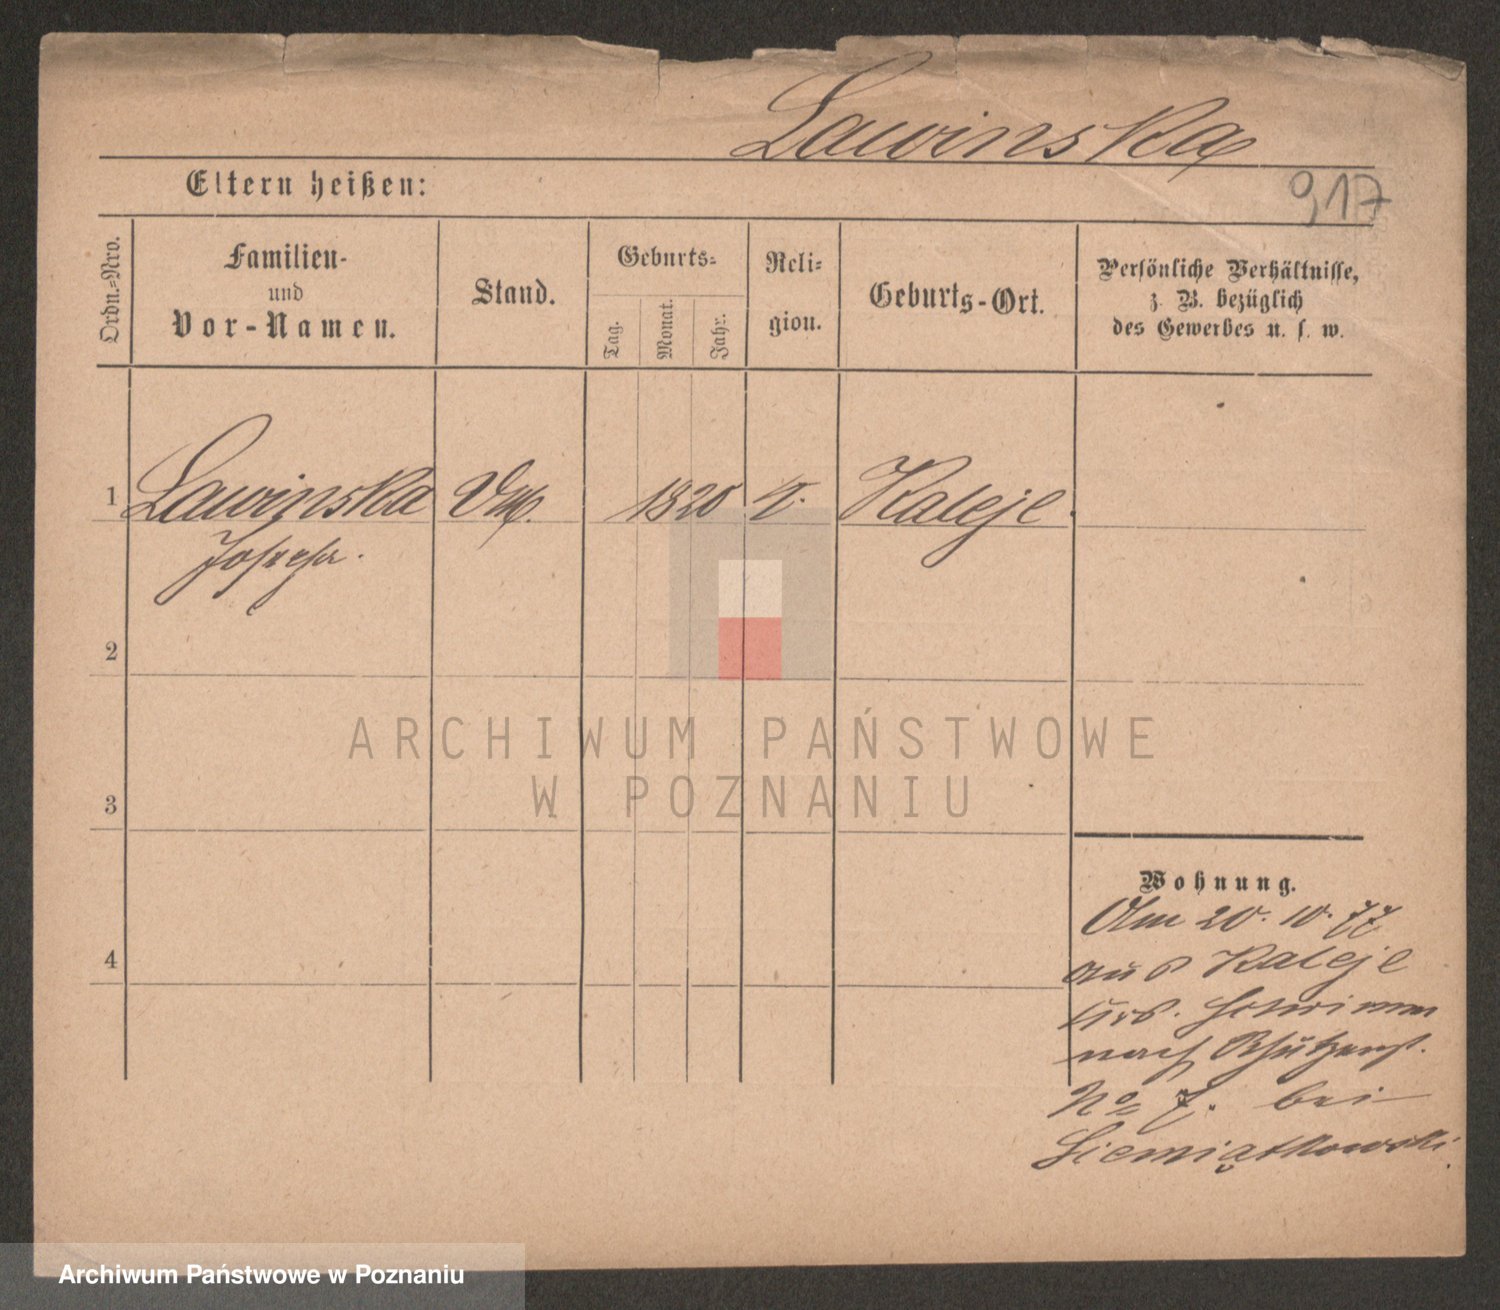 Lawinska
917
Eltern heißen:
Ordn.=Nro.
Familien-
und
Vor-Namen.
Stand.
Geburts=
Tag.
Monat.
Jahr.
Reli=
gion.
Geburts-Ort.
Persönliche Verhältnisse,
z. B. bezüglich
des Gewerbes u. s. w.
1 Lawinska 1820 Kaleje.
Josepha.
2
3
4
Wohnung.
Am 20. 10. 77
aus Kaleje
nach Schützenst.
No 7. bei
Siemiątkowski.
ARCHIWUM PAŃSTWOWE
W POZNANIU
Archiwum Państwowe w Poznaniu